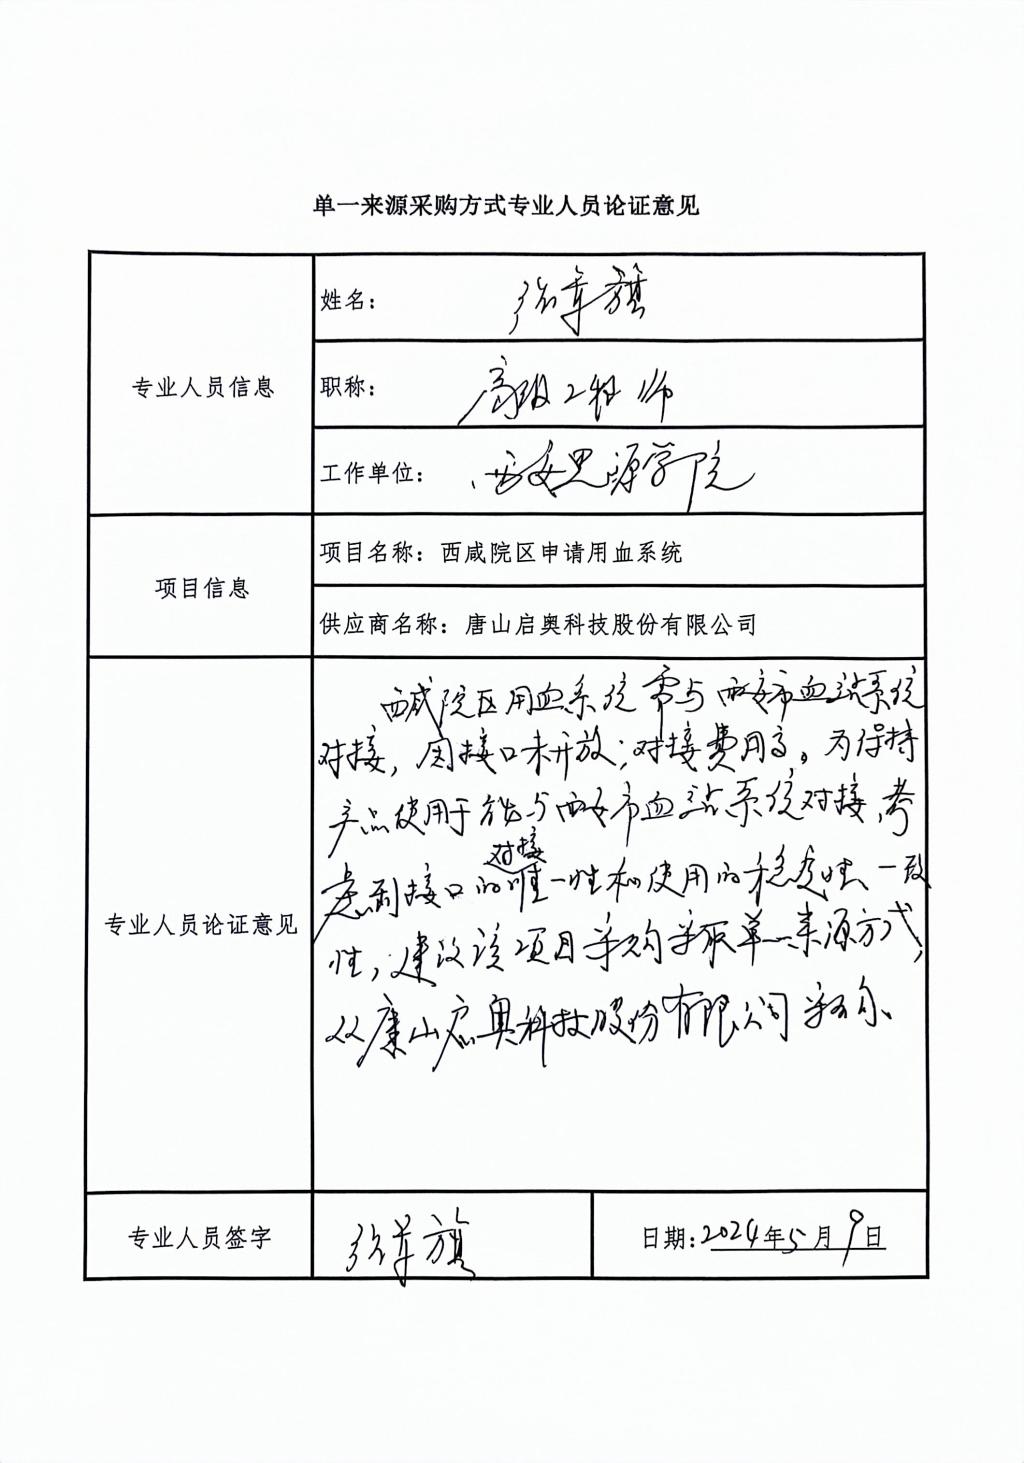 单一来源采购方式专业人员论证意见
专业人员信息
姓名: 军旗
职称: 高级工程师
工作单位: 西安思源学院
项目信息
项目名称: 西咸院区申请用血系统
供应商名称: 唐山启奥科技股份有限公司
专业人员论证意见
西咸院区用血系统需与西安市血站系统
对接，因接口未开放；对接费用高。为保持
产品使用于能与西安市血站系统对接，考
虑到接口的对接唯一性和使用的稳定性、一致
性，建议该项目采购采取单一来源方式，
从唐山启奥科技股份有限公司采购、
专业人员签字
军旗
日期: 2024年5月9日